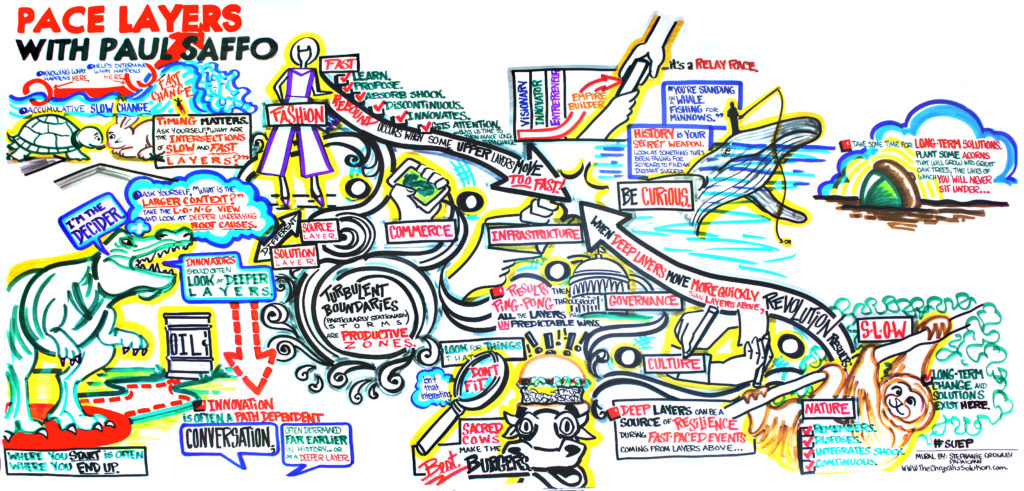 PACE LAYERS
WITH PAUL SAFFO
KNOWING WHAT
HAPPENS HERE,
HELPS DETERMINE
WHAT HAPPENS
HERE.
FAST
CHANGE
ACCUMULATIVE SLOW CHANGE
TIMING MATTERS.
ASK YOURSELF, "WHAT ARE
THE INTERSECTIONS
OF SLOW AND FAST
LAYERS?"
FASHION
FAST
LEARN.
PROPOSE.
ABSORB SHOCK.
DISCONTINUOUS.
INNOVATES.
GETS ATTENTION.
BUYS US TIME TO
THEN MAKE LONG
REBOUND OCCURS WHEN SOME UPPER LAYERS MOVE
TOO FAST!
VISIONARY
INNOVATOR
ENTREPRENEUR
EMPIRE
BUILDER
it's a RELAY RACE.
"YOU'RE STANDING
ON A WHALE
FISHING FOR
MINNOWS."
HISTORY IS YOUR
SECRET WEAPON.
LOOK AT SOMETHING THAT'S
BEEN FAILING FOR
20 YEARS TO FIND AN
INSTANT SUCCESS.
BE CURIOUS.
TAKE SOME TIME FOR LONG-TERM SOLUTIONS.
PLANT SOME ACORNS
THAT WILL GROW INTO GREAT
OAK TREES, THE LIKES OF
WHICH YOU WILL NEVER
SIT UNDER...
I'M THE
DECIDER
ASK YOURSELF, "WHAT IS THE
LARGER CONTEXT?"
TAKE THE L-O-N-G VIEW
AND LOOK AT DEEPER UNDERLYING
ROOT CAUSES.
INNOVATORS
SHOULD OFTEN
LOOK AT DEEPER
LAYERS.
DIFFERENT
SOURCE
LAYER.
SOLUTION
LAYER.
COMMERCE
INFRASTRUCTURE
TURBULENT
BOUNDARIES
(PARTICULARLY STATIONARY
STORMS)
ARE PRODUCTIVE
ZONES.
RESULTS THEN
PING-PONG THROUGHOUT
ALL THE LAYERS IN
UNPREDICTABLE WAYS.
GOVERNANCE
WHEN DEEP LAYERS MOVE MORE QUICKLY,
THAN LAYERS ABOVE,
REVOLUTION
RESULTS
SLOW
OIL
INNOVATION
IS OFTEN A PATH DEPENDENT
CONVERSATION,
OFTEN DETERMINED
FAR EARLIER
IN HISTORY... OR
AT A DEEPER LAYER.
WHERE YOU START IS OFTEN
WHERE YOU END UP.
LOOK FOR THINGS
THAT
DON'T
FIT.
isn't
that
interesting.
SACRED
COWS
MAKE THE
Best BURGERS
CULTURE
DEEP LAYERS CAN BE A
SOURCE OF RESILIENCE
DURING FAST-PACED EVENTS
COMING FROM LAYERS ABOVE...
NATURE
REMEMBERS.
DISPOSES.
INTEGRATES SHOCK.
CONTINUOUS.
LONG-TERM
CHANGE AND
SOLUTIONS
EXIST HERE.
#SUEP
MURAL BY: STEPHANIE CROWLEY
www.TheChrysalisSolution.com